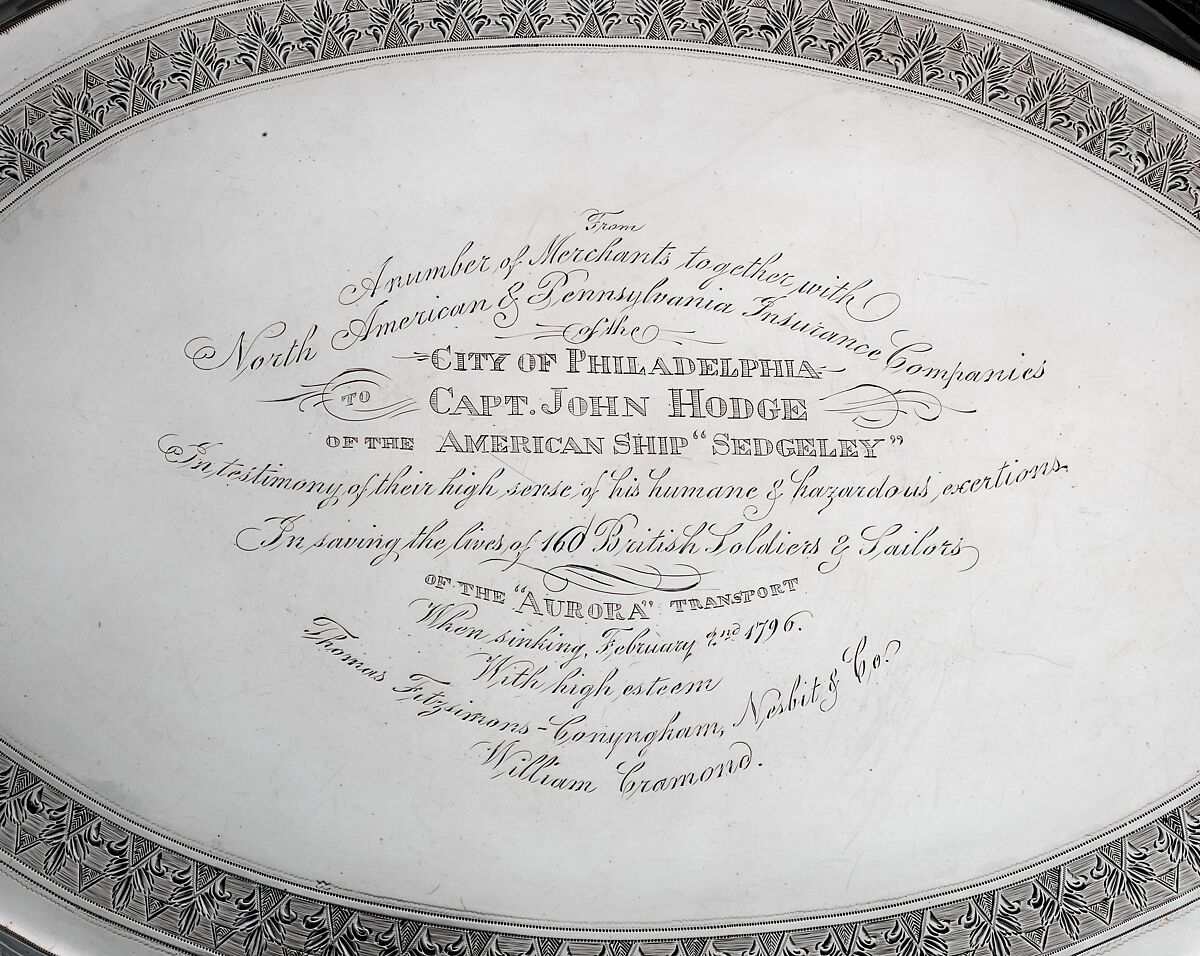 From
A number of Merchants together with
North American & Pennsylvania Insurance Companies
of the
CITY OF PHILADELPHIA
TO CAPT. JOHN HODGE
OF THE AMERICAN SHIP "SEDGELEY"
In testimony of their high sense of his humane & hazardous exertions
In saving the lives of 160 British Soldiers & Sailors
OF THE "AURORA" TRANSPORT
When sinking, February 2nd 1796.
With high esteem
Thomas Fitzsimons - Conyngham, Nesbit & Co.
William Cramond.